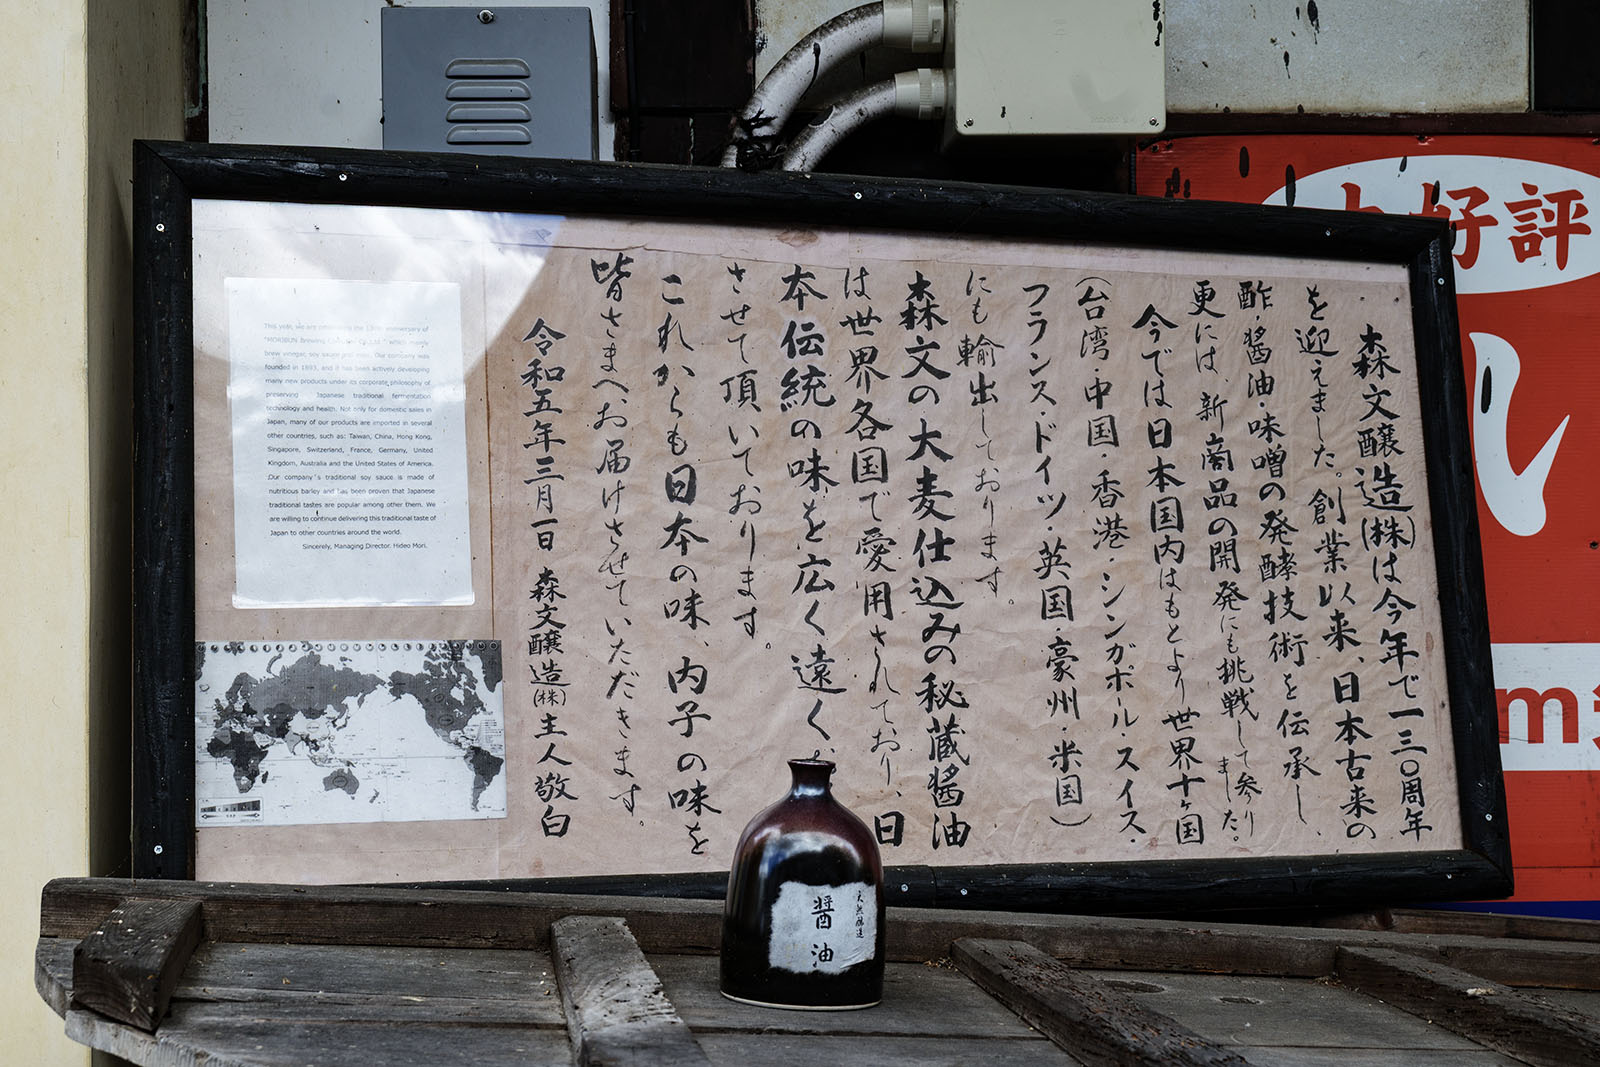 森文醸造(株)は今年で一三〇周年
を迎えました。創業以来、日本古来の
酢・醤油・味噌の発酵技術を伝承し、
更には、新商品の開発にも挑戦して参りました。
今では日本国内はもとより世界十ヶ国
(台湾・中国・香港・シンガポール・スイス・
フランス・ドイツ・英国・豪州・米国)
にも輸出しております。
森文の大麦仕込みの秘蔵醤油
は世界各国で愛用されており、日
本伝統の味を広く遠く
させて頂いております。
これからも日本の味、内子の味を
皆さまへお届けさせていただきます。
令和五年三月一日 森文醸造(株)主人敬白
This year, we are celebrating the 130th anniversary of
"MORIBUN Brewing which mainly
brew vinegar, soy sauce and miso. Our company was
founded in 1893, and it has been actively developing
many new products under its corporate philosophy of
preserving Japanese traditional fermentation
technology and health. Not only for domestic sales in
Japan, many of our products are imported in several
other countries, such as: Taiwan, China, Hong Kong,
Singapore, Switzerland, France, Germany, United
Kingdom, Australia and the United States of America.
Our company's traditional soy sauce is made of
nutritious barley and has been proven that Japanese
traditional tastes are popular among other them. We
are willing to continue delivering this traditional taste of
Japan to other countries around the world.
Sincerely, Managing Director. Hideo Mori.
天然醸造
醤油
好評
m